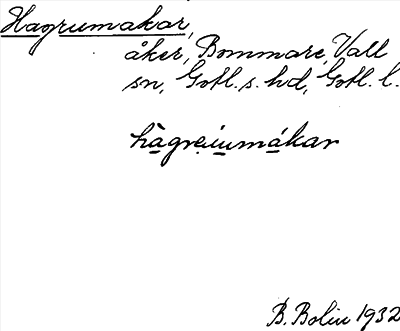 Hagrumakar,
åker, Bommare, Vall
sn, Gotl. s. hd, Gotl. l.
hàgreiumákar
B. Bolin 1932